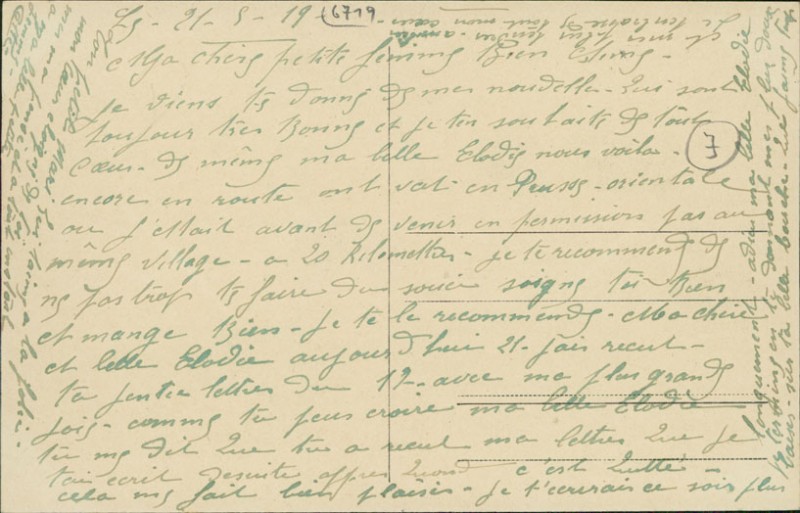 21-5-19
(6719
Ma chere petite femme Bien Aimé-
Je viens te donné de mes nouvelle- qui sont
toujour tres bonne et je ten souhaite de tout
cœur- de même ma belle Elodie nous voila-
encore en route ont vat en Prusse-orientale
ou j'ettait avant de venir en permission pas au
même village- a 20 Kilomettre- je te recommende de
ne pas trop te faire du souci soigne toi Bien
et mange Bien- je te le recommende- Ma chere
et belle Elodie aujourd'hui 21- jais recut-
ta jentie lettre du 12- avec ma plus grande
joie- comme tu peus croire ma belle Elodie
tu me dit que tu a recut ma lettre que je
tai ecrit desuite appres quond c'est quitté-
cela me fait bien plaisir- je t'ecrirais ce soir plus
longuement- adieu ma belle Elodie
je termine en te donnant mes plus doux
baiser- sur ta belle bouche-
Ton petit Mari qui t'aime a la folie-
mon cœur
7